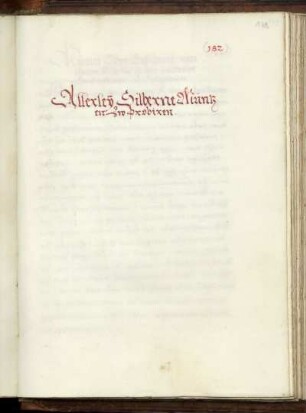 182
Allerleÿ Silberne Müntz
en zu probiren